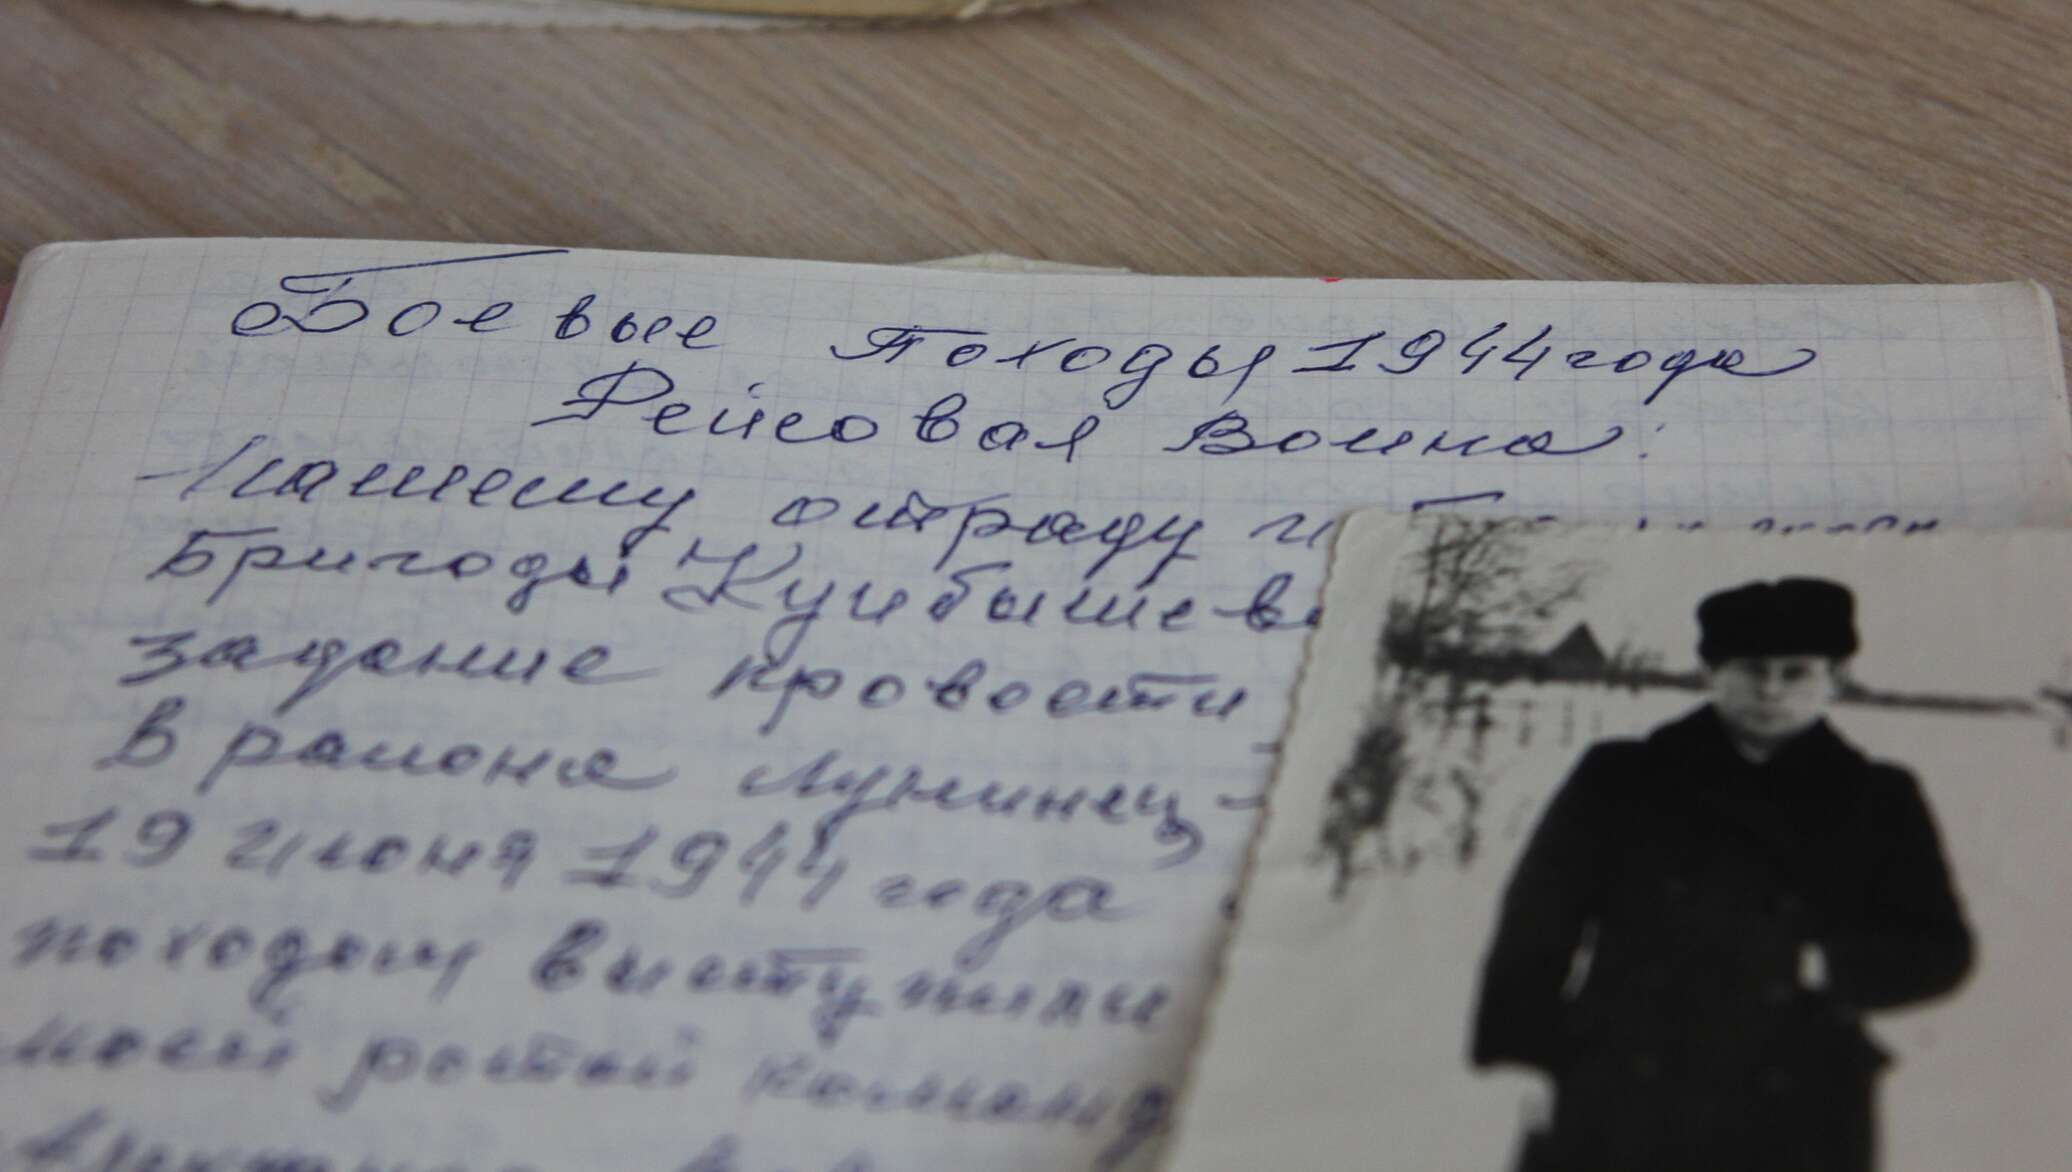 Боевые Походы 1944 года
Рейсовая Война:
Нашему отряду и
Бригады Куйбышева
задание провести
в районе Лунинец-
19 июня 1944 года
походом выступили
моей ротой команд